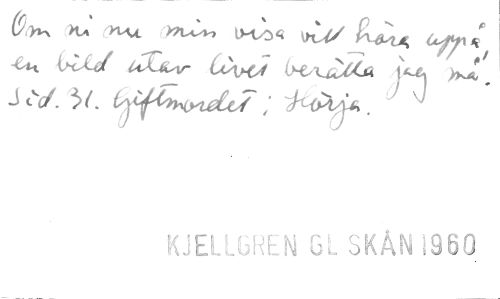 Om ni nu min visa vill höra uppå,
en bild utav livet berätta jag må.
Sid. 31. Giftmordet i Hörja.
KJELLGREN GL SKÅN 1960